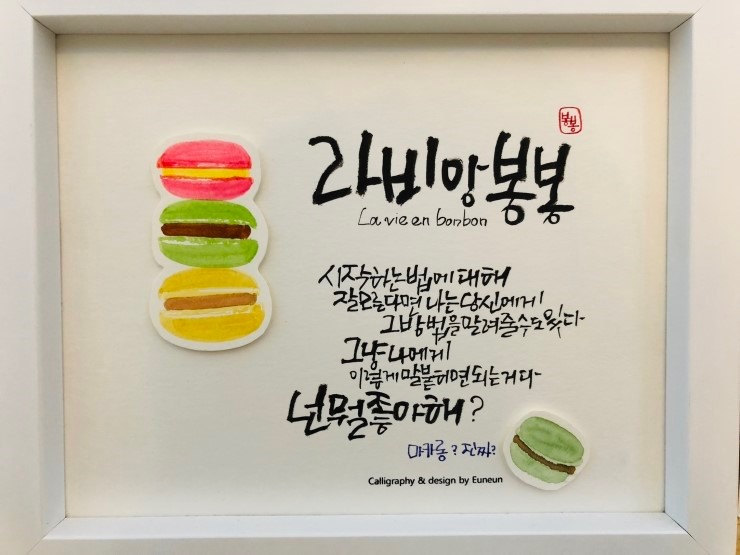 봉봉
라비앙봉봉
La vie en bonbon
시작하는법에대해
잘모른다면 나는 당신에게
그방법을알려줄수도있다
그냥 나에게
이렇게말붙이면되는거다
넌뭘좋아해?
마카롱? 진짜?
Calligraphy & design by Euneun